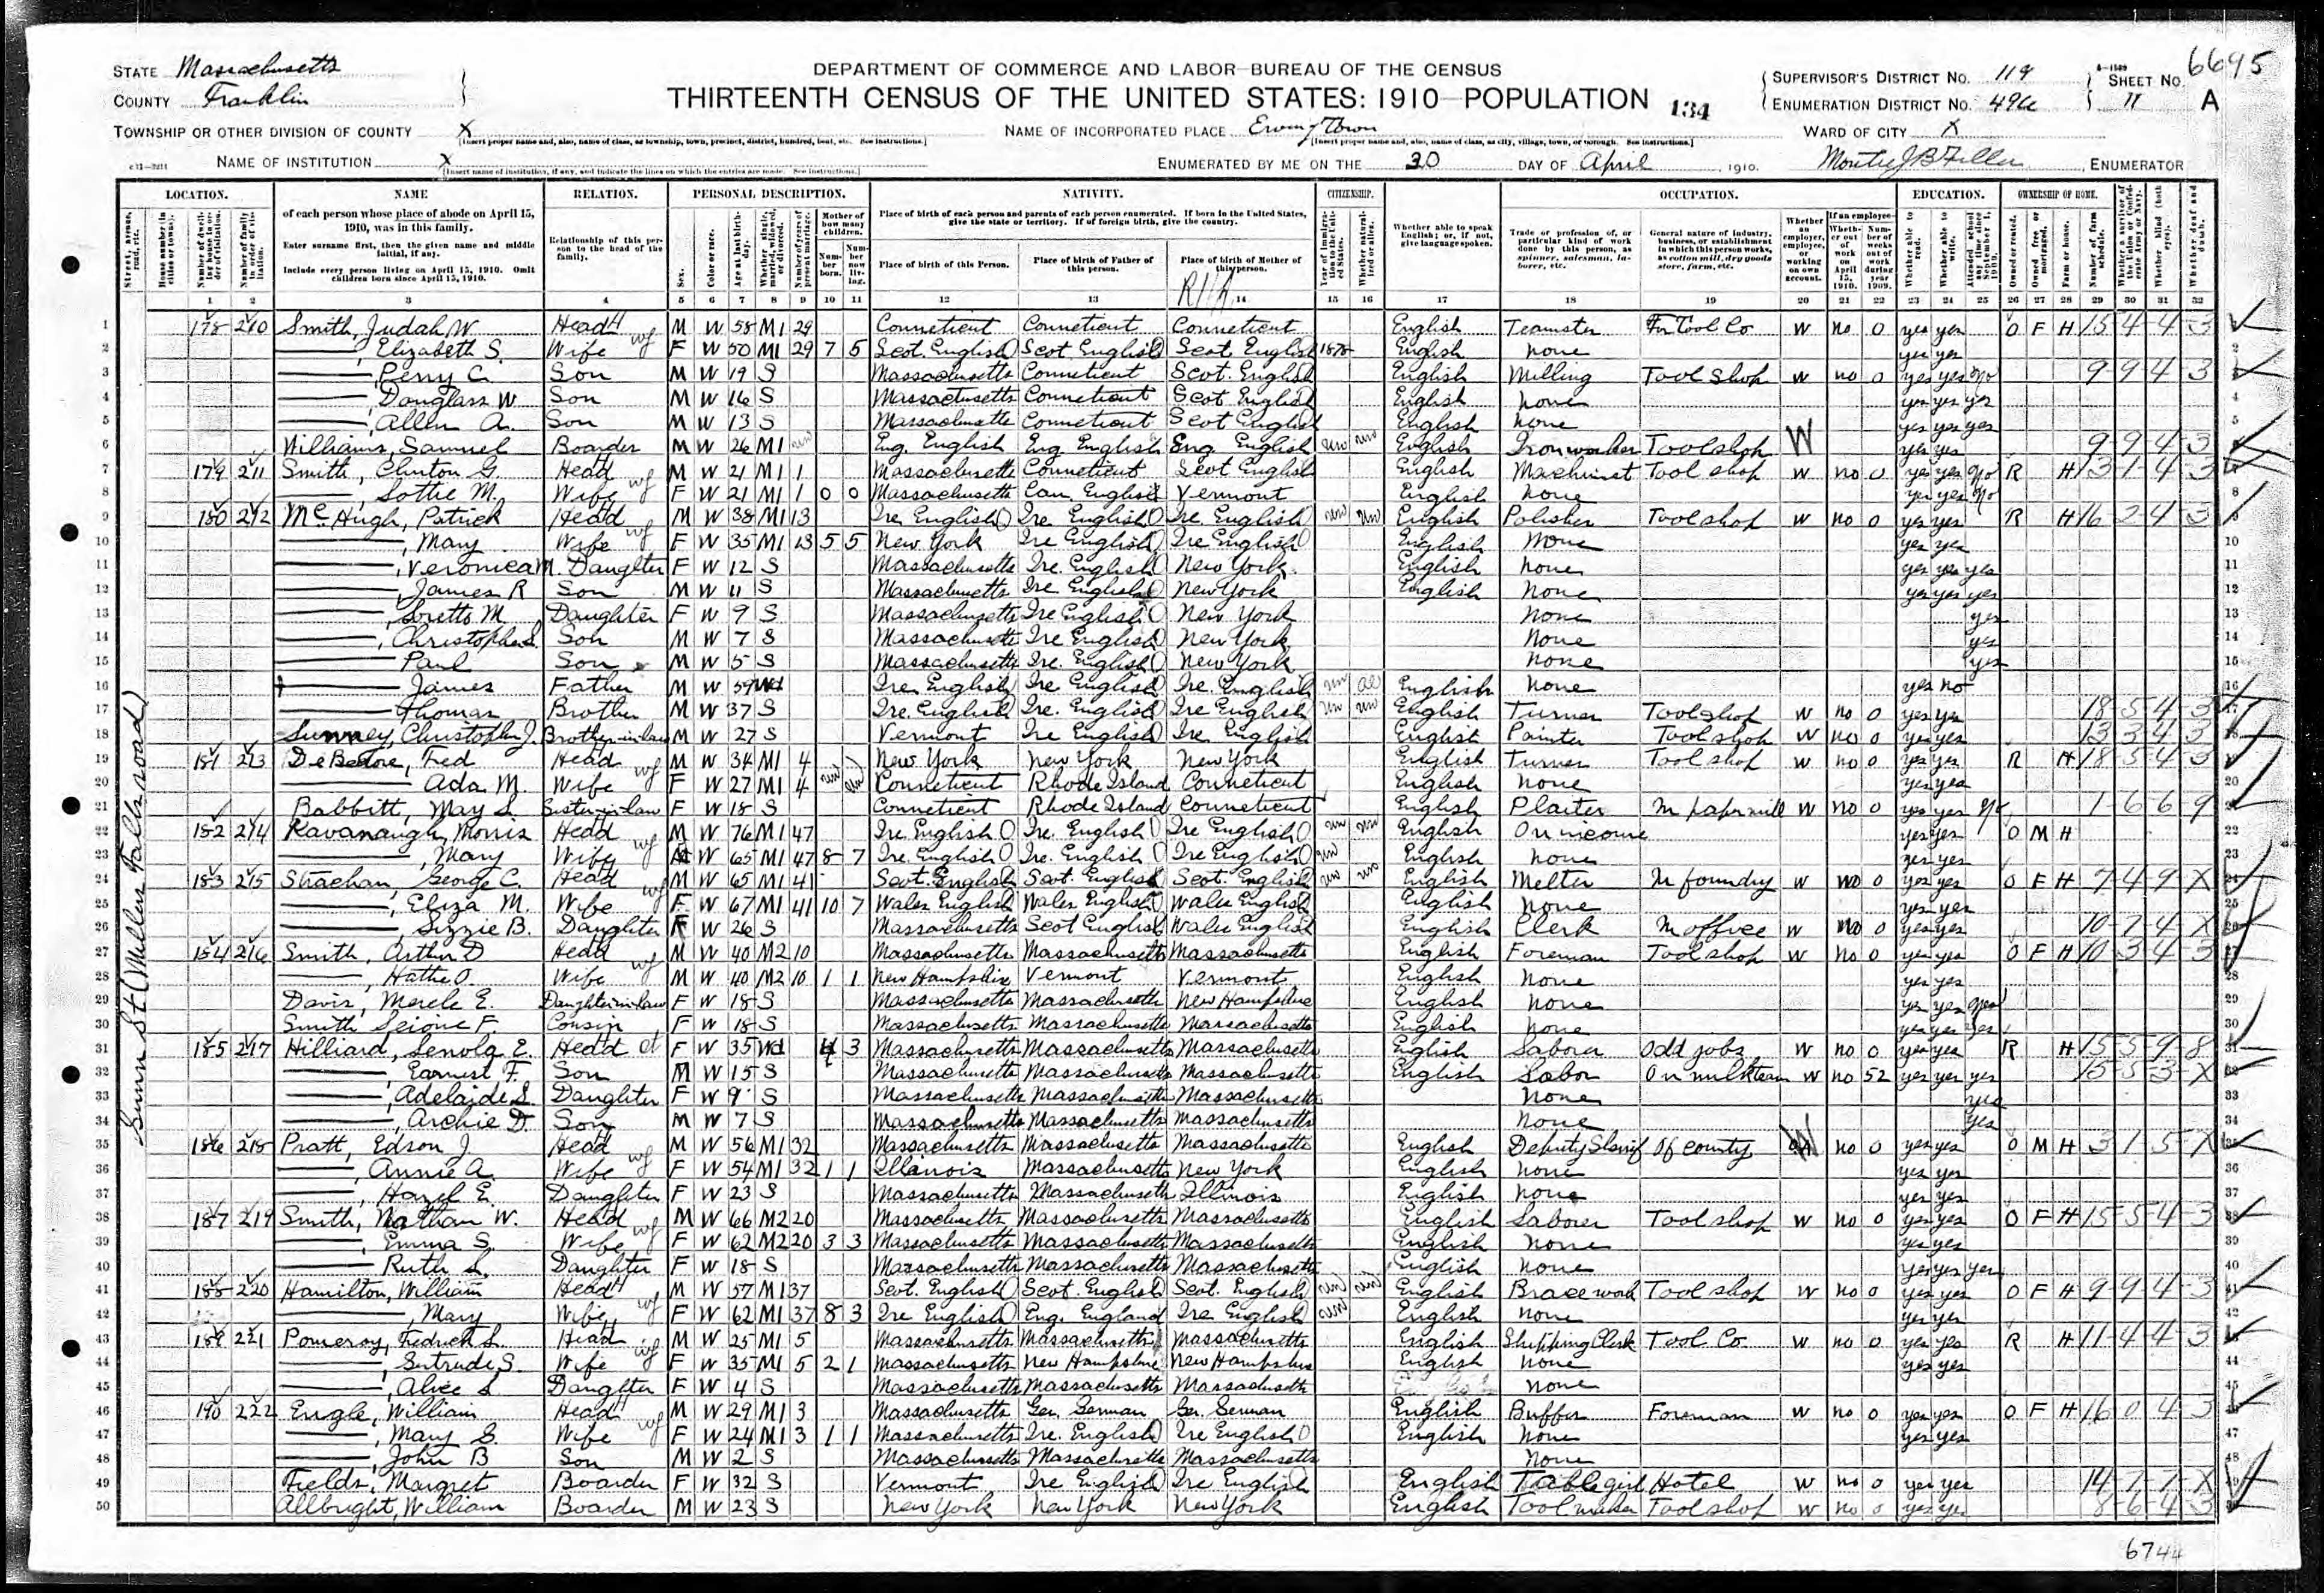 6695
STATE Massachusetts
COUNTY Franklin
DEPARTMENT OF COMMERCE AND LABOR—BUREAU OF THE CENSUS
THIRTEENTH CENSUS OF THE UNITED STATES: 1910—POPULATION
134
SUPERVISOR'S DISTRICT No. 119
ENUMERATION DISTRICT No. 496
SHEET No. 11 A
TOWNSHIP OR OTHER DIVISION OF COUNTY X
NAME OF INCORPORATED PLACE Erving Town
WARD OF CITY X
NAME OF INSTITUTION X
ENUMERATED BY ME ON THE 30 DAY OF April, 1910.
ENUMERATOR
LOCATION. NAME RELATION. PERSONAL DESCRIPTION. NATIVITY. CITIZENSHIP. OCCUPATION. EDUCATION. OWNERSHIP OF HOME.
of each person whose place of abode on April 15, 1910, was in this family.
Enter surname first, then the given name and middle initial, if any.
Include every person living on April 15, 1910. Omit children born since April 15, 1910.
Relationship of this person to the head of the family.
Place of birth of each person and parents of each person enumerated. If born in the United States, give the state or territory. If of foreign birth, give the country.
Place of birth of this Person. Place of birth of Father of this person. Place of birth of Mother of this person.
Whether able to speak English; or, if not, give language spoken.
1 2 3 4 5 6 7 8 9 10 11 12 13 14 15 16 17 18 19 20 21 22 23 24 25 26 27 28 29 30 31 32
1 178 210 Smith, Judah W Head M W 58 M1 29 Conneticut Conneticut Conneticut English Teamster Tool Co W no 0 yes yes O F H 15 4 4 3
2 , Elizabeth S. Wife F W 50 M1 29 7 5 Scot. English Scot English Scot English 1878 English none yes yes
3 , Perry C. Son M W 19 S Massachusetts Conneticut Scot. English English Milling Tool Shop W no 0 yes yes no 9 9 4 3
4 , Douglass W Son M W 16 S Massachusetts Conneticut Scot English English none yes yes yes
5 , Allen A. Son M W 13 S Massachusetts Conneticut Scot English English none yes yes yes
6 Williams, Samuel Boarder M W 26 M1 Eng. English Eng English Eng English un un English Ironworker Toolshop W yes yes 9 9 4 3
7 179 211 Smith, Clinton G. Head M W 21 M1 1 Massachusetts Conneticut Scot English English Machinist Tool shop W no 0 yes yes no R H 13 1 4 3
8 , Lottie M. Wife F W 21 M1 1 0 0 Massachusetts Can. English Vermont English none yes yes no
9 180 212 McHugh, Patrick Head M W 38 M1 13 Ire English Ire English Ire. English un un English Polisher Tool shop W no 0 yes yes R H 16 2 4 3
10 , Mary Wife F W 35 M1 13 5 5 New York Ire English Ire English English none yes yes
11 , Veronica M. Daughter F W 12 S Massachusetts Ire. English New York English none yes yes yes
12 , James R Son M W 11 S Massachusetts Ire English New York English none yes yes yes
13 , Loretto M. Daughter F W 9 S Massachusetts Ire English New York none yes
14 , Christopher L. Son M W 7 S Massachusetts Ire English New York none yes
15 Paul Son M W 5 S Massachusetts Ire. English New York none yes
16 James Father M W 59 Wd Ire English Ire English Ire. English un al English none yes no
17 Thomas Brother M W 37 S Ire. English Ire. English Ire English un un English Turner Toolshop W no 0 yes yes 18 5 4 3
18 Christopher J. Brother-in-law M W 27 S Vermont Ire English Ire English English Painter Tool shop W no 0 yes yes 13 3 4 3
19 181 213 Fred Head M W 34 M1 4 New York New York New York English Turner Tool shop W no 0 yes yes R H 18 5 4 3
20 Ada M. Wife F W 27 M1 4 un un Conneticut Rhode Island Conneticut English none yes yes
21 Babbitt, May S. Sister-in-law F W 18 S Conneticut Rhode Island Conneticut English Plaiter paper mill W no 0 yes yes no 1 6 6 9
22 182 214 Kavanaugh, Morris Head M W 76 M1 47 Ire. English Ire. English Ire English un un English On income yes yes O M H
23 , Mary Wife W 65 M1 47 8 7 Ire. English Ire. English Ire English un English none yes yes
24 183 215 Strachan, George C. Head M W 65 M1 41 Scot. English Scot. English Scot. English un un English Melter foundry W no 0 yes yes O F H 7 4 9 X
25 , Eliza M. Wife F W 67 M1 41 10 7 Wales English Wales English Wales English English none yes yes
26 , Lizzie B. Daughter F W 26 S Massachusetts Scot English Wales English English Clerk office W no 0 yes yes 10 7 4 X
27 184 216 Smith, Arthur D Head M W 40 M2 10 Massachusetts Massachusetts Massachusetts English Foreman Tool shop W no 0 yes yes O F H 10 3 4 3
28 , Hattie O. Wife M W 40 M2 10 1 1 New Hampshire Vermont Vermont English none yes yes
29 Davis, Merele E. Daughter-in-law F W 18 S Massachusetts Massachusetts New Hampshire English none yes yes yes
30 Smith F. Cousin F W 18 S Massachusetts Massachusetts Massachusetts English none yes yes yes
31 185 217 Hilliard, Lenola E. Head F W 35 Wd 4 3 Massachusetts Massachusetts Massachusetts English Laborer Odd jobs W no 0 yes yes R H 15 5 9 8
32 , Earnest F. Son M W 15 S Massachusetts Massachusetts Massachusetts English Labor On milk team W no 52 yes yes yes 15 5 3 X
33 , Adelaide L. Daughter F W 9 S Massachusetts Massachusetts Massachusetts none yes
34 , Archie D. Son M W 7 S Massachusetts Massachusetts Massachusetts none yes
35 186 218 Pratt, Edson J. Head M W 56 M1 32 Massachusetts Massachusetts Massachusetts English Deputy Sherif Of county no 0 yes yes O M H 3 1 5 X
36 , Annie A. Wife F W 54 M1 32 1 1 Illinois Massachusetts New York English none yes yes
37 , Hazel E. Daughter F W 23 S Massachusetts Massachusetts Illinois English none yes yes
38 187 219 Smith, Nathan W. Head M W 66 M2 20 Massachusetts Massachusetts Massachusetts English Laborer Tool shop W no 0 yes yes O F H 15 5 4 3
39 , Emma S. Wife F W 62 M2 20 3 3 Massachusetts Massachusetts Massachusetts English none yes yes
40 Ruth L. Daughter F W 18 S Massachusetts Massachusetts Massachusetts English none yes yes yes
41 188 220 Hamilton, William Head M W 57 M1 37 Scot. English Scot. English Scot. English un un English Brace work Tool shop W no 0 yes yes O F H 9 9 4 3
42 , Mary Wife F W 62 M1 37 8 3 Ire English Eng. England Ire English un English none yes yes
43 189 221 Pomeroy, Fredrick L. Head M W 25 M1 5 Massachusetts Massachusetts Massachusetts English Shipping Clerk Tool Co. W no 0 yes yes R H 11 4 4 3
44 , Gertrude S. Wife F W 35 M1 5 2 1 Massachusetts New Hampshire New Hampshire English none yes yes
45 , Alice L Daughter F W 4 S Massachusetts Massachusetts Massachusetts none
46 190 222 Engle, William Head M W 29 M1 3 Massachusetts Ger. German Ger. German English Buffer Foreman W no 0 yes yes O F H 16 0 4 3
47 , Mary G. Wife F W 24 M1 3 1 1 Massachusetts Ire. English Ire English English none yes yes
48 , John B Son M W 2 S Massachusetts Massachusetts Massachusetts none
49 Fields, Margret Boarder F W 32 S Vermont Ire English Ire English English Table girl Hotel W no 0 yes yes 14 7 7 X
50 Allbright, William Boarder M W 23 S New York New York New York English Tool maker Tool shop W no 0 yes yes 8 6 4 3
(Millers Falls road)
6744